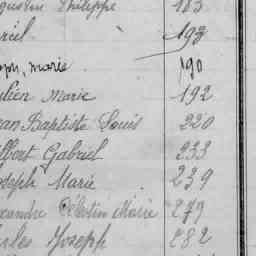 gustin Philippe 183
rcel 193
eph, marie 190
ulien Marie 192
ean Baptiste Louis 220
lbert Gabriel 233
oseph Marie 239
exandre Célestin Marie 279
arles Joseph 282